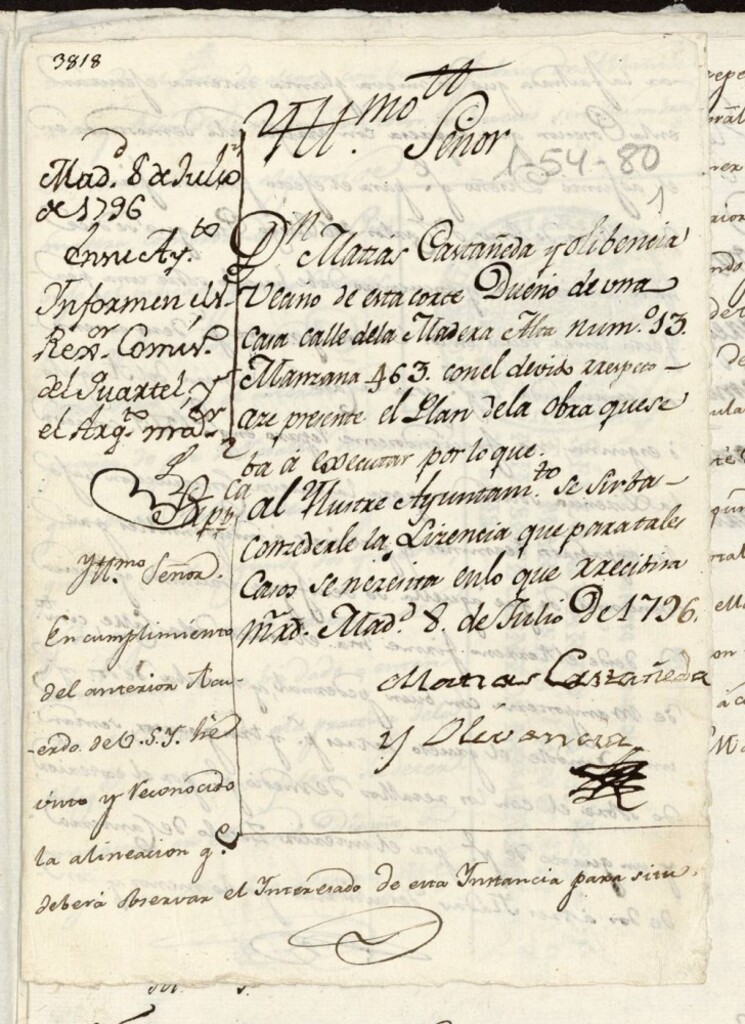 3818
Yll.mo
Señor
1-54-80
1
Mad.d 8 de Julio
de 1796
En su Ay.to
Informen el S.r
Rex.or Comis.o
del Quartel, y
el Arq.to mai.r
D.n Matias Castañeda y olibencia
Vecino de esta corte Dueño de una
casa calle dela Madera Alta num.o 13.
Manzana 463. con el devido rrespeto
aze presente el Plan dela obra que se
ba á executar por lo que.
al Yllustre Ayuntam.to se sirba
Conzederle la Lizencia que para tales
Casos se nezesita en lo que rrecibira
mrd. Mad.d 8. de Julio De 1796.
Matias Castañeda
y Olivencia
Yll.mo Señor.
En cumplimiento
del anterior Acu-
erdo de V.S.Y. he
visto y Reconocido
la alineacion q.e
deberá observar el Interesado de esta Instancia para situ